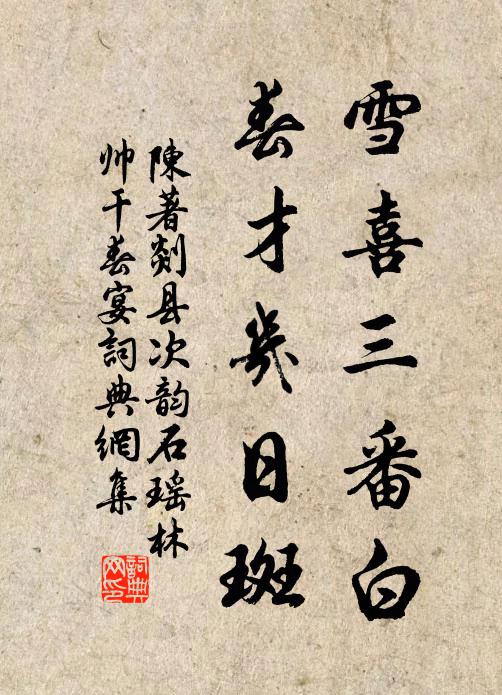 雪喜三番白
春才幾日斑
陳著剡县次韵石瑶林
帅干春宴詞典網集
詞典网印